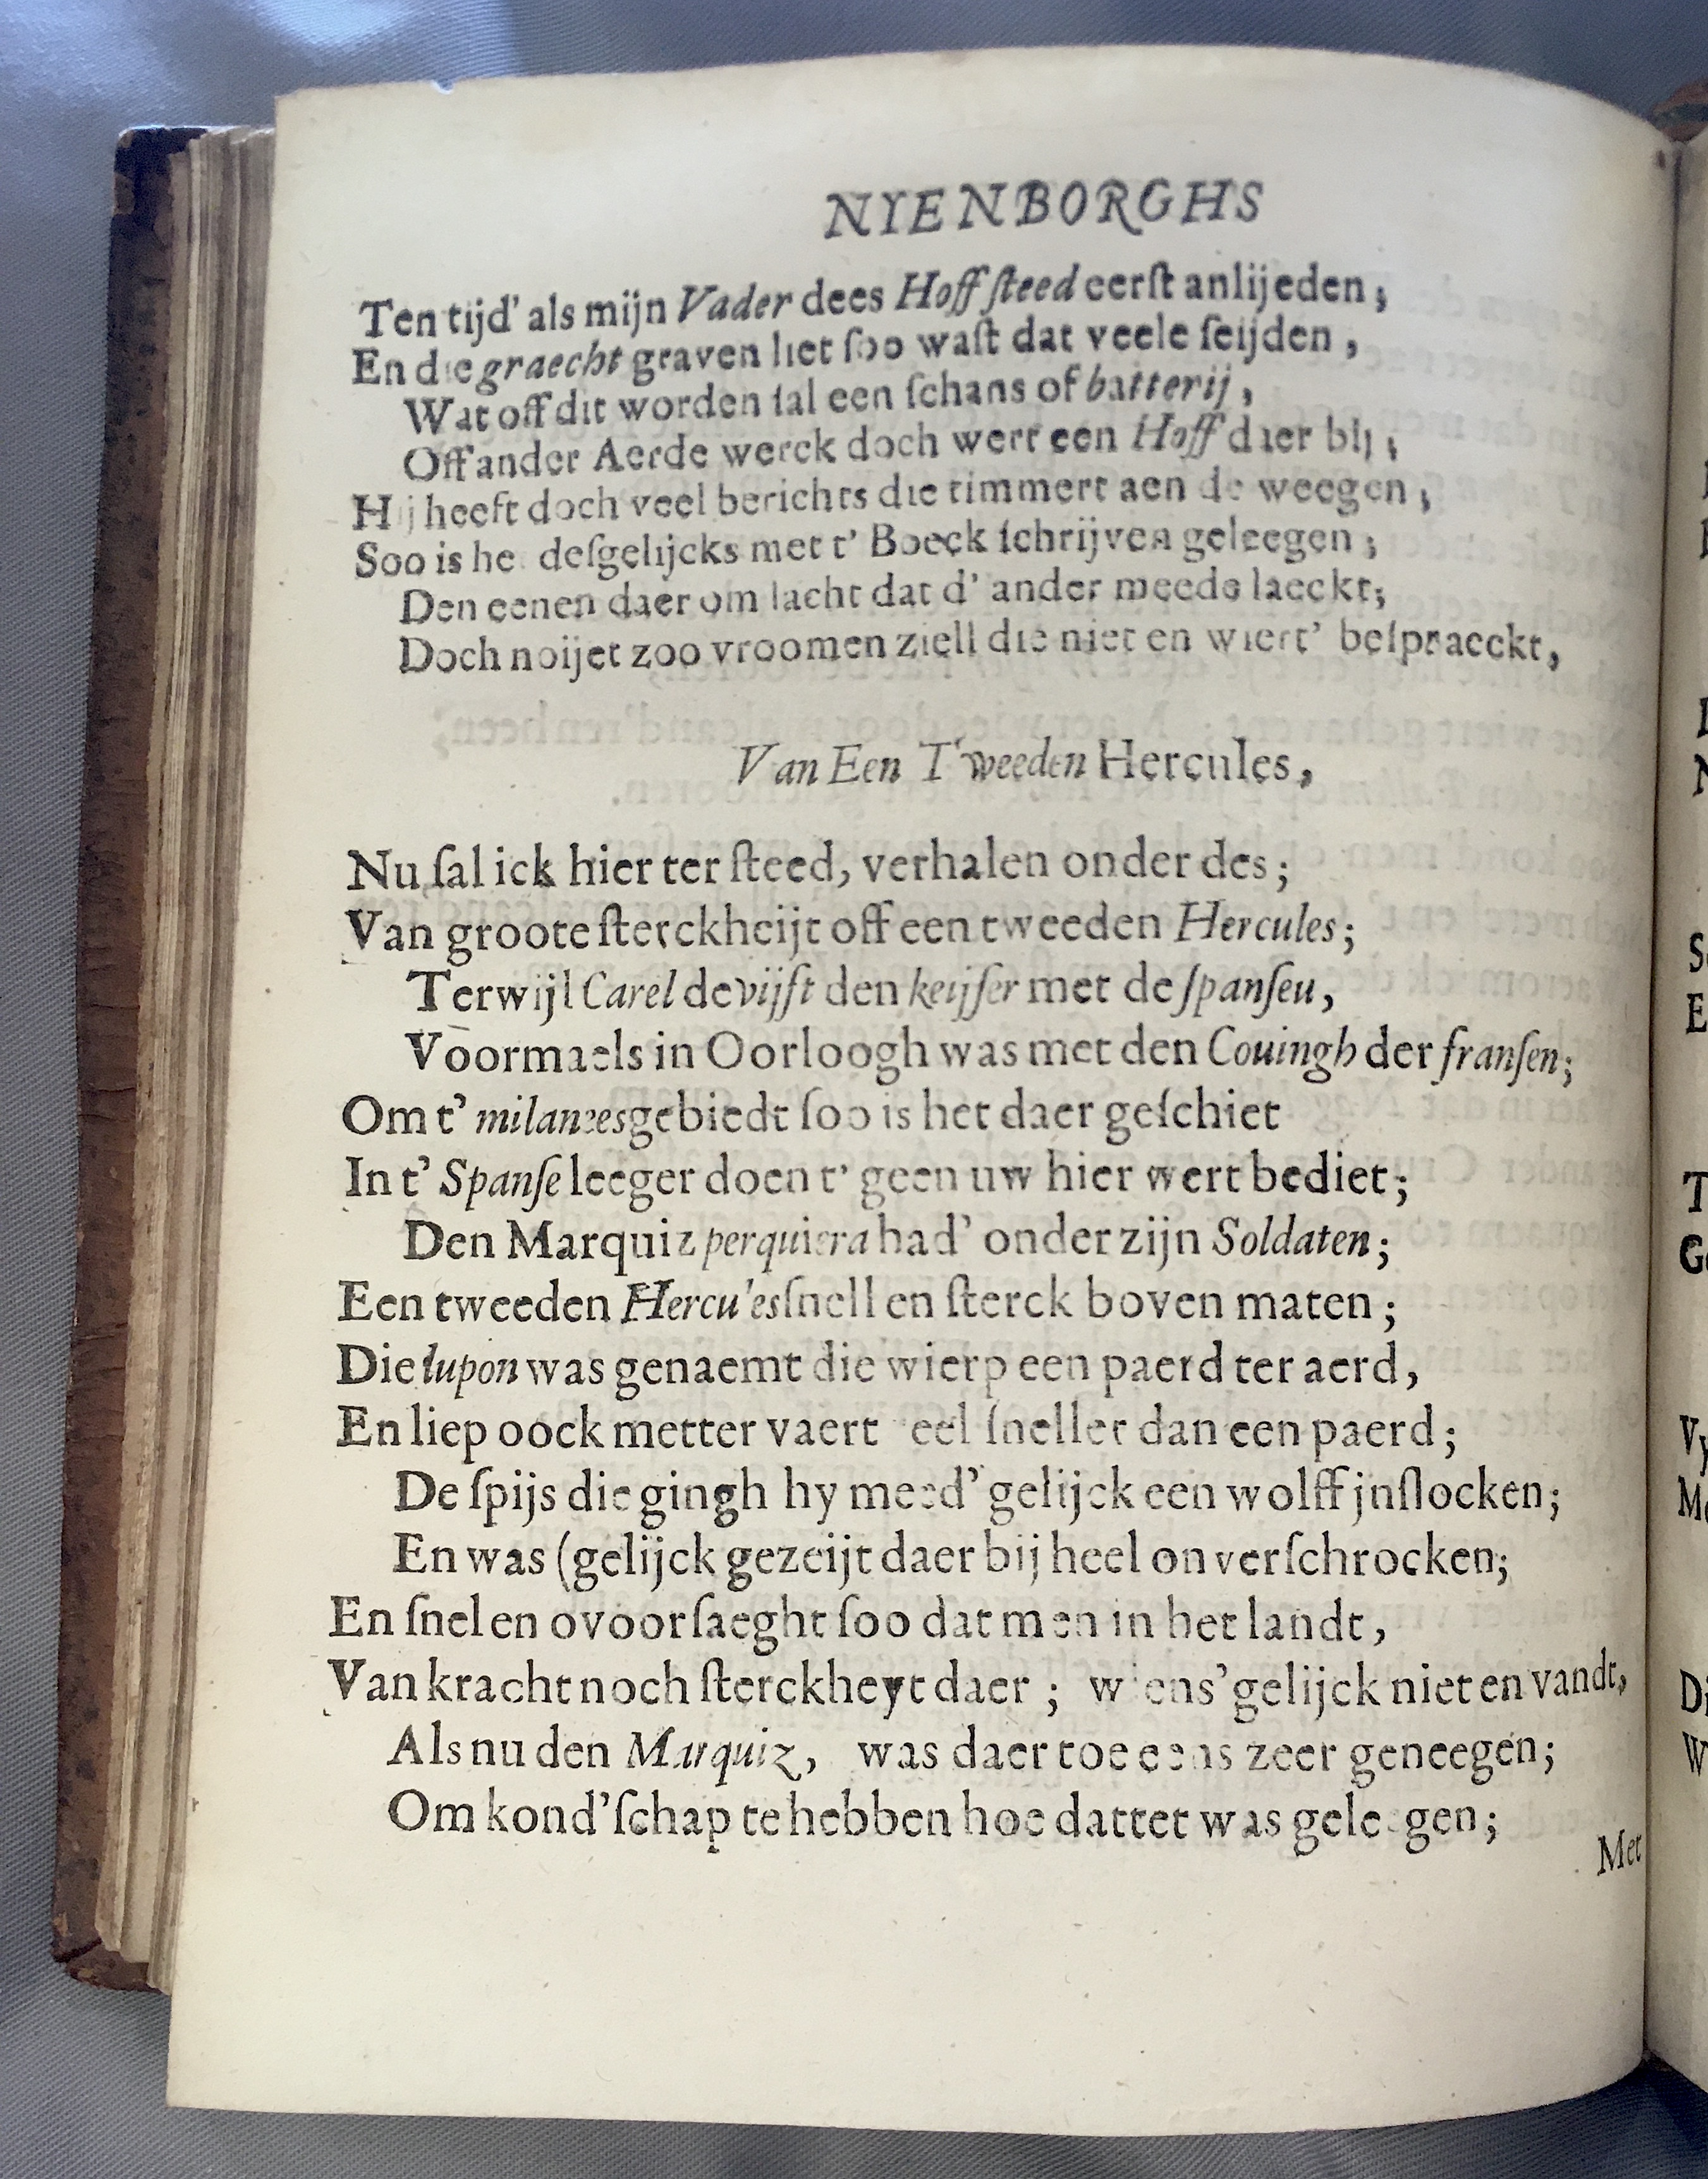 NYENBORGHS
Ten tijd' als mijn Vader dees Hoff ſteed eerſt anlijeden;
En die graecht graven liet ſoo waſt dat veele ſeijden,
Wat off dit worden ſal een ſchans of batterij,
Off ander Aerde werck doch wert een Hoff daer bij;
Hij heeft doch veel berichts die timmert aen de weegen;
Soo is he deſgelijcks met t' Boeck ſchrijven geleegen;
Den eenen daer om lacht dat d' ander meede laeckt;
Doch noijet zoo vroomen ziell die niet en wiert' beſpraeckt,
Van Een Tweeden Hercules,
Nu ſal ick hier ter ſteed, verhalen onder des;
Van groote ſterckheijt off een tweeden Hercules;
Terwijl Carel de vijft den keijſer met de ſpanſeu,
Voormaels in Oorloogh was met den Couingh der franſen;
Om t' milaneesgebiedt ſoo is het daer geſchiet
In t' Spanſe leeger doen t' geen uw hier wert bediet;
Den Marquiz perquiera had' onder zijn Soldaten;
Een tweeden Hercu'es ſnell en ſterck boven maten;
Die lupon was genaemt die wierp een paerd ter aerd,
En liep oock metter vaert eel ſneller dan een paerd;
De ſpijs die gingh hy meed' gelijck een wolff jnſlocken;
En was (gelijck gezeijt daer bij heel onverſchrocken;
En ſnel en ovoorſaeght ſoo dat men in het landt,
Van kracht noch ſterckheyt daer; wiens' gelijck niet en vandt,
Als nu den Marquiz, was daer toe eens zeer geneegen;
Om kond' ſchap te hebben hoe dattet was geleegen;
Met